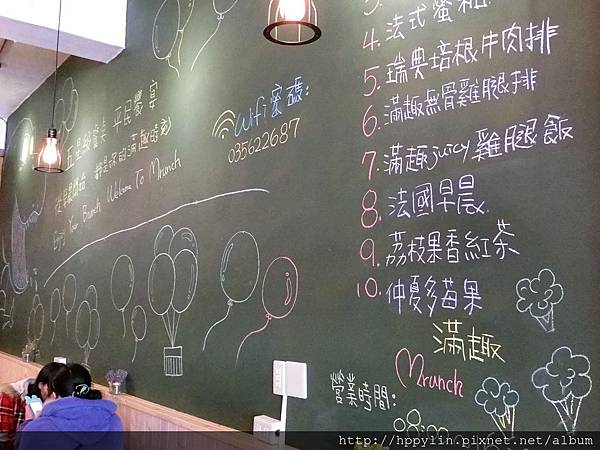 五星級餐桌 平民饗宴
Enjoy Your Brunch Welcome To Mrunch
Wifi密碼:
035622687
4. 法式蜜糖
5. 瑞典培根牛肉排
6. 滿趣無骨雞腿排
7. 滿趣juicy雞腿飯
8. 法國早晨
9. 荔枝果香紅茶
10. 仲夏多莓果
滿趣
Mrunch
營業時間:
http://hppylin.pixnet.net/album